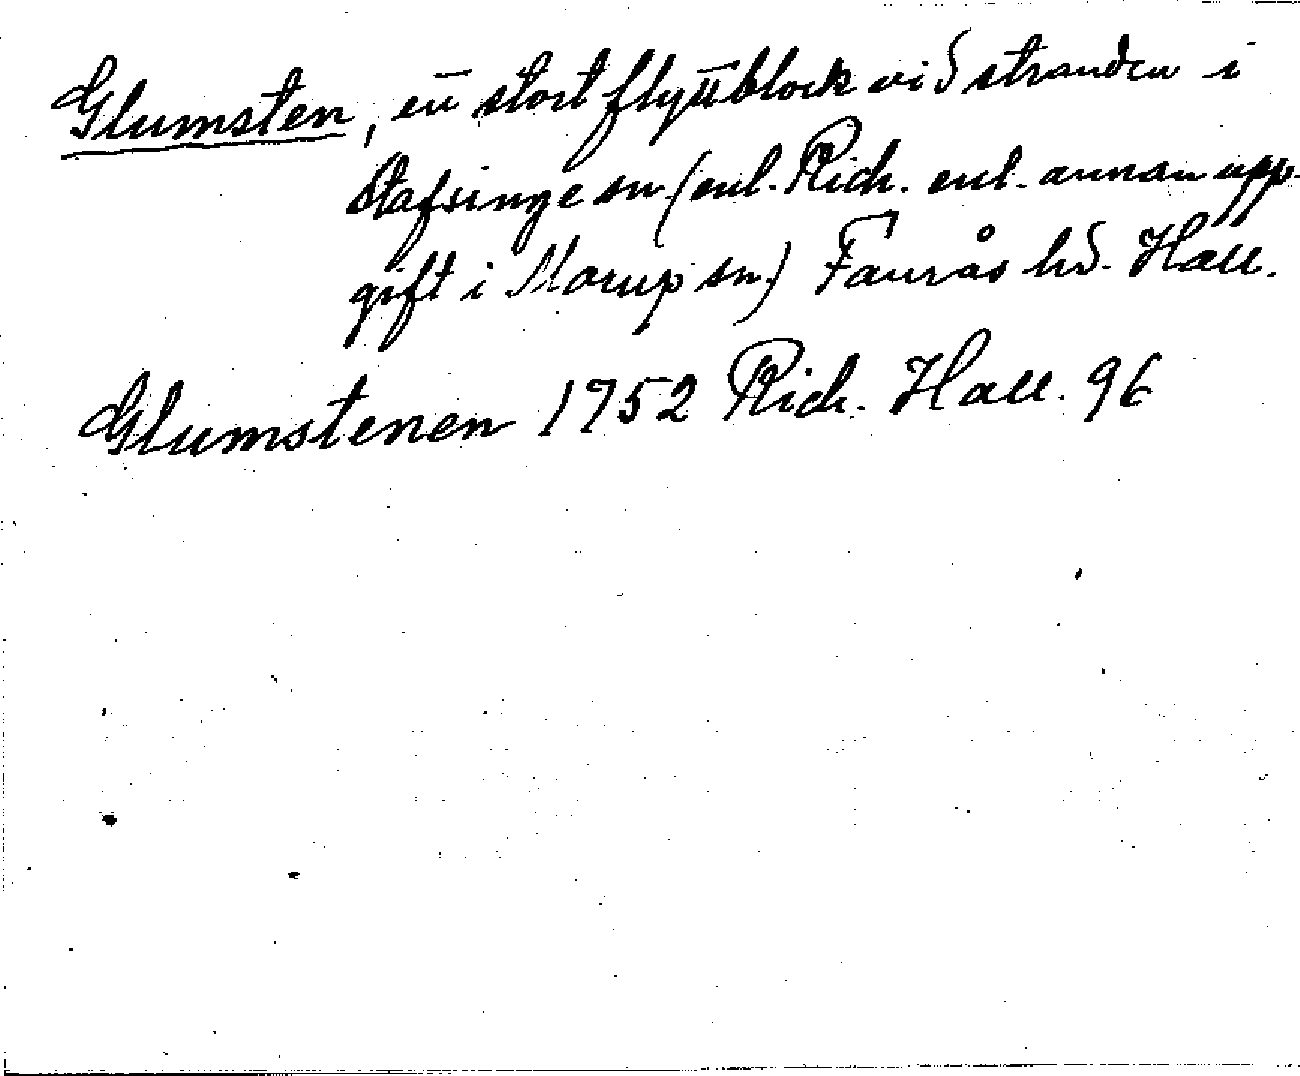 Glumsten, ett stort flyttblock vid stranden i
Stafsinge sn (enl. Rich. enl. annan upp-
gift i Morup sn) Faurås hd. Hall.
Glumstenen 1752 Rich. Hall. 96